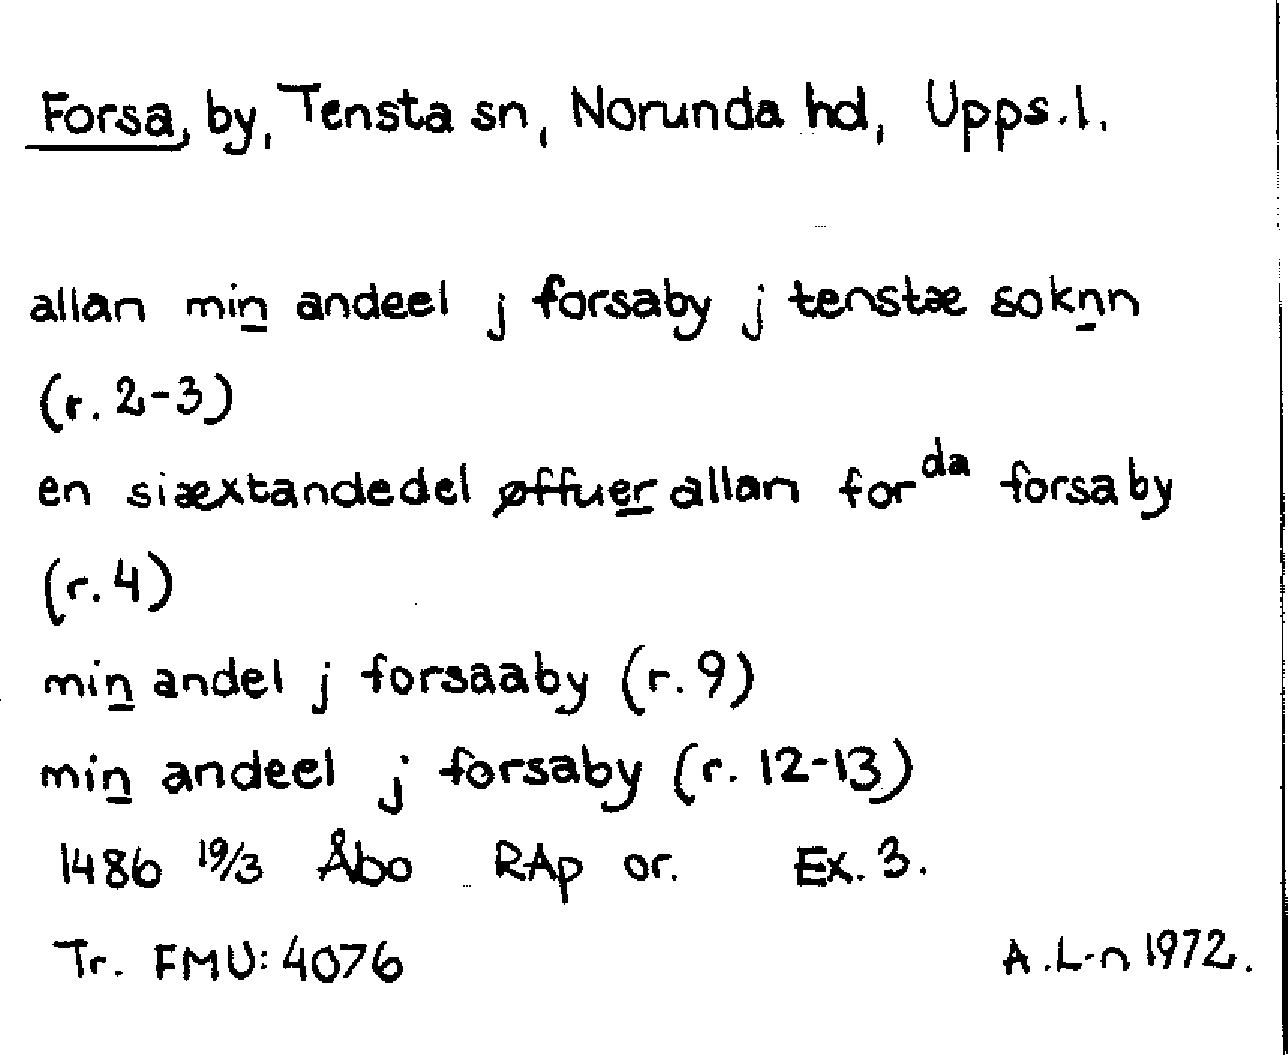 Forsa, by, Tensta sn, Norunda hd, Upps.l.
allan min andeel j forsaby j tenstæ soknn
(r. 2-3)
en siæxtandedel øffuer allan for da forsaby
(r. 4)
min andel j forsaaby (r. 9)
min andeel j forsaby (r. 12-13)
1486 19/3 Åbo RAp or. Ex. 3.
Tr. FMU: 4076 A.L-n 1972.